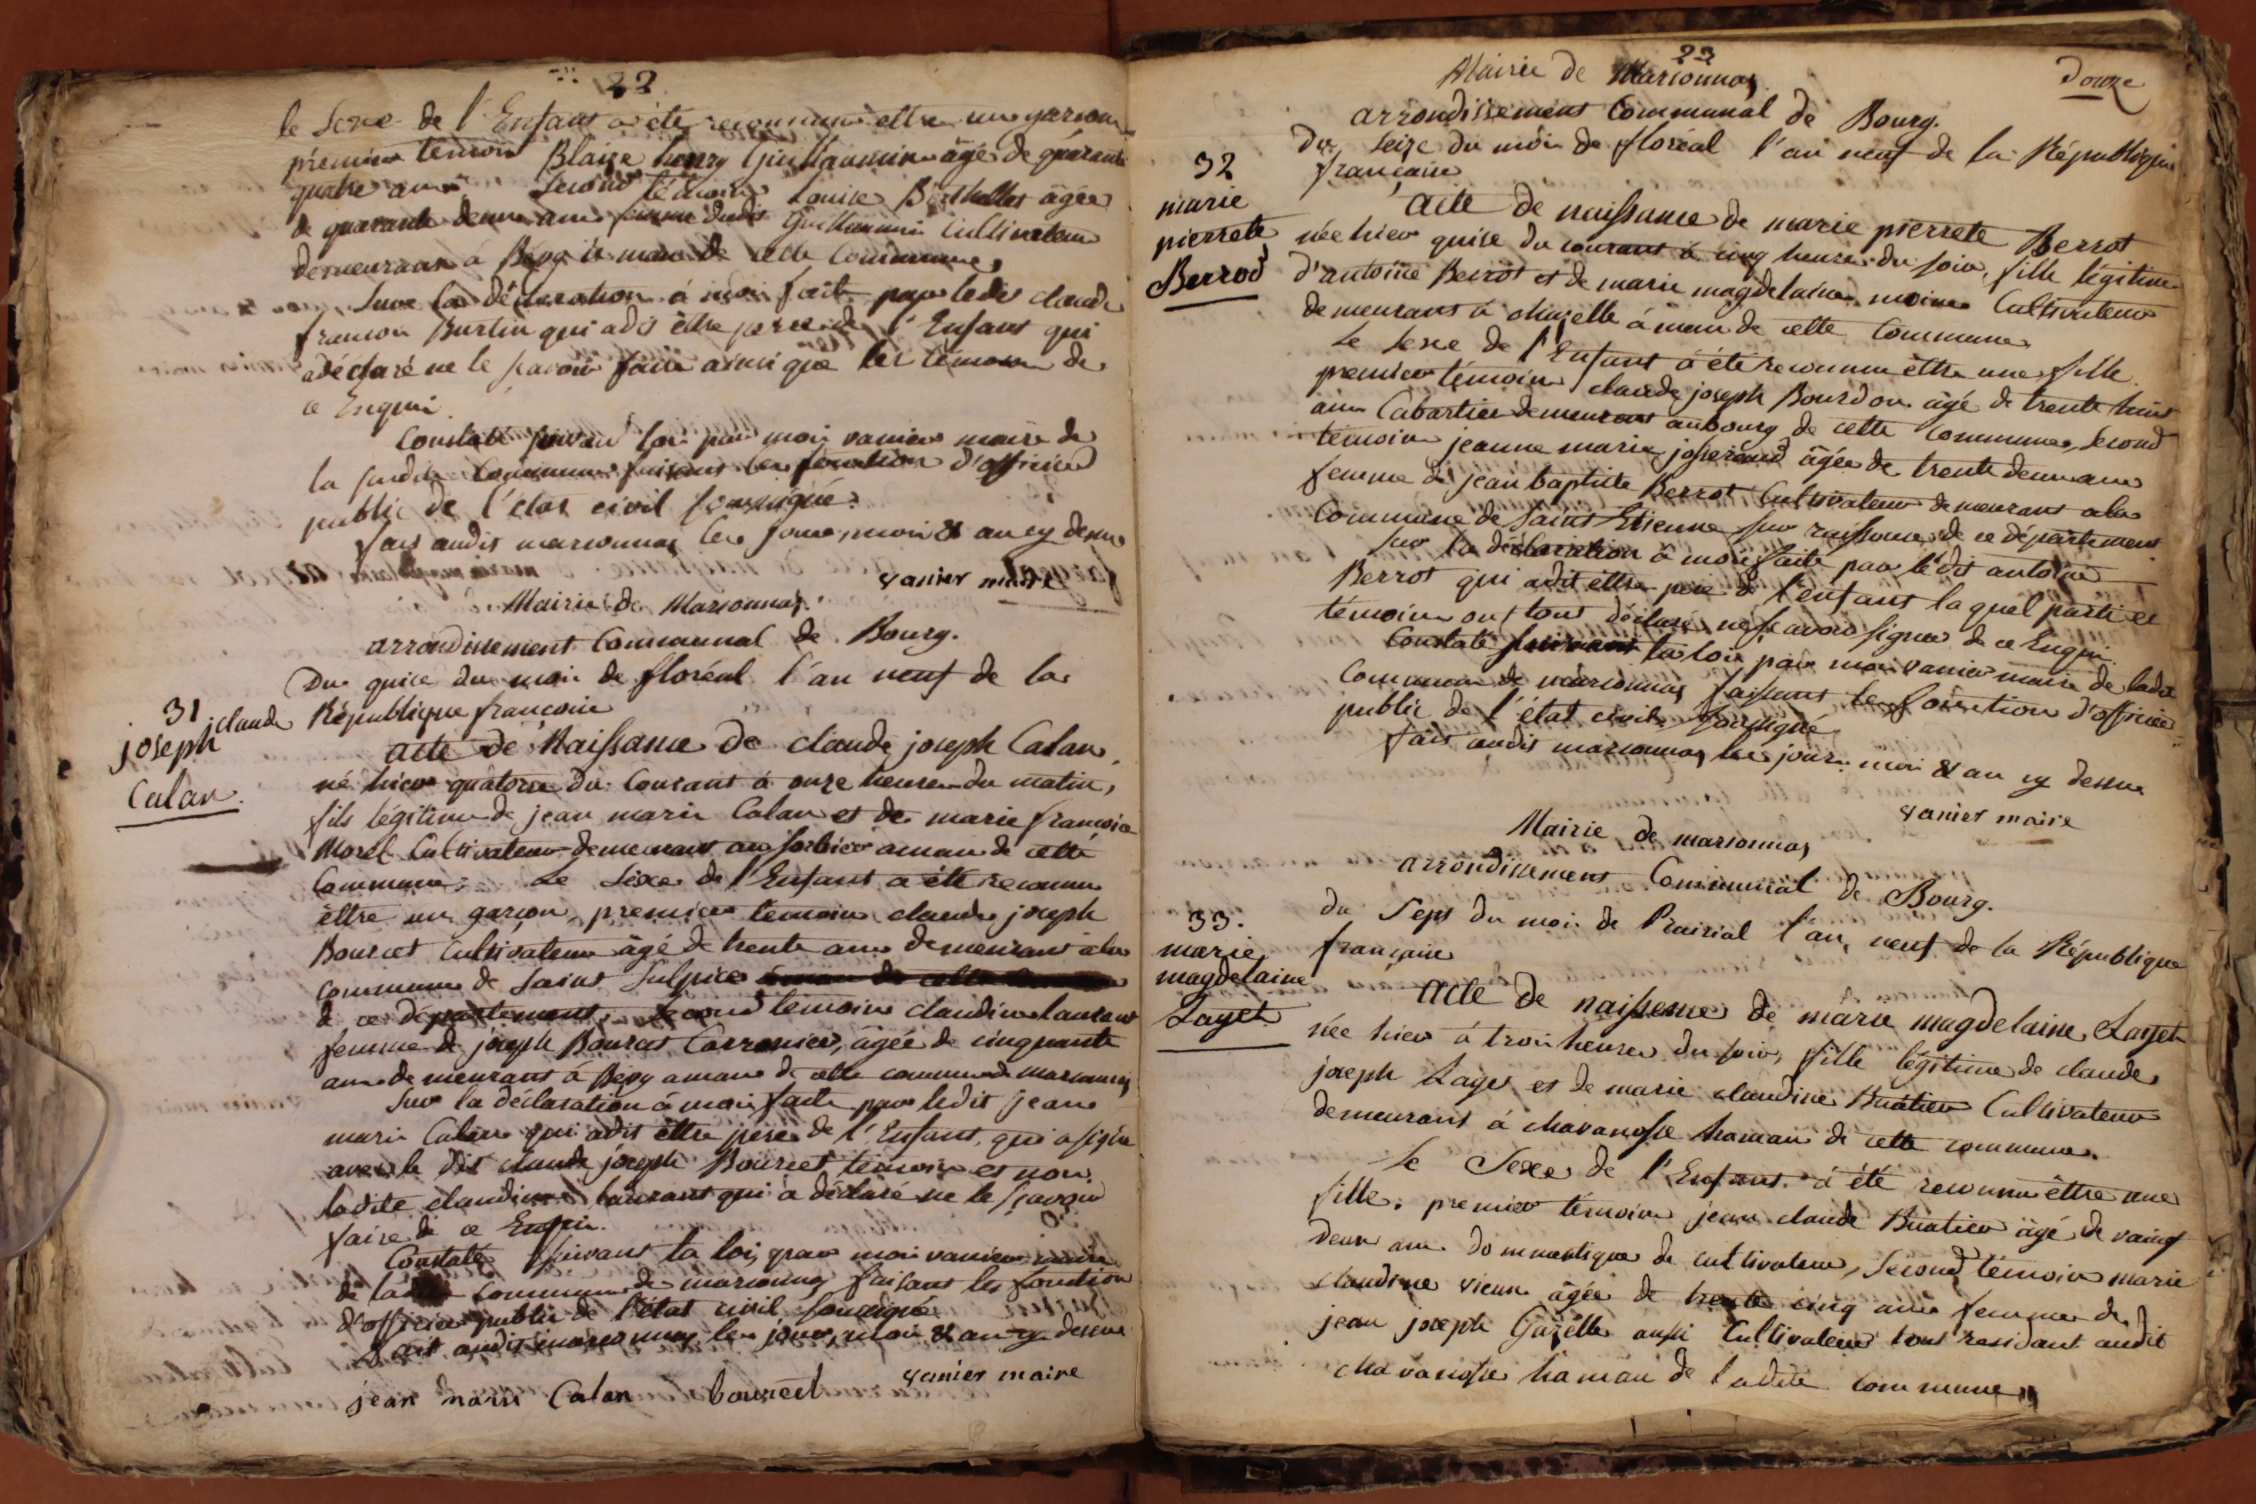 22
le Sexe de l'Enfant a été reconnu ettre un garcon
prémier temoin Blaize henry Guillaumin âgé de quarante
quatre ans second témoin Louise Berthellet âgée
de quarante deux ans femme dudit Guillaumin Cultivateur
demeurant à Bévy hamau de cette Commune,
Sur la déclaration à moi faite par ledit claude
francois Burtin qui a dit être pere de l'Enfant qui
a déclaré ne le scavoir faire ainsi que les témoins de
ce Enquis.
Constaté suivant loi par moi vanier maire de
la susdite Commune faisant les fonction d'officier
public de l'état civil soussigné.
fait audit marsonnas les jour, moi & an cy dessus
vanier maire
Mairie de Marsonnas.
arrondissement Communal de Bourg.
Du quise du moi de floréal l'an neuf de la
République francoise
31
claude
joseph
Calan.
acte de Naissance de claude joseph Calan,
né hier quatorse du Courant à onze heures du matin,
fils légitime de jean marie Calan et de marie francoise
Morel Cultivateur demeurant au sorbier amau de cette
Commune. Le Séxe de l'Enfant a été reconnu
êttre un garçon, premier temoin claude joseph
Bourcet Cultivateur âgé de trente ans demeurant à la
commune de Saint Sulpice
de ce département, second témoin claudine laurent
femme de joseph Bourcet Carronier, âgée de cinquante
ans demeurant à Bévy amau de cette commune de marsonnas
Sur la déclaration à moi faite par ledit jean
marie Calan qui a dit êttre pere de l'Enfant, qui a signé
avec le dit claude joseph Bourcet, témoin et non
ladite claudine laurant qui a déclaré ne le sçavoir
faire de ce Enquis.
Constaté suivant la loi, par moi vanier maire
de ladite commune de marsonnas faisant les fonction
d'officier public de l'état civil soussigné
fait audit marsonnas les jour, moi & an cy dessus
vanier maire
jean marie Calan bourcet
23
Douze
Mairie de Marsonnas
arrondissement Communal de Bourg.
Du seize du moi de floréal l'an neuf de la République
française
32
marie
pierrete
Berrod
acte de naissance de marie pierrete Berrot
née hier quise du courant à cinq heures du soir, fille légitime
d'antoine Berrot et de marie magdelaine moine Cultivateur
demeurant à chazelle à mau de cette Commune
Le Sexe de l'Enfant à été reconnu êttre une fille.
premier témoin claude joseph Bourdon âgé de trente huit
ans Cabartier demeurant au bourg de cette commune, second
témoin jeanne marie josserand âgée de trente deux ans
femme de jean baptiste Berrot Cultivateur demeurant à la
Commune de Saint Etienne sur raissouse, de ce département
Sur la déclaration à moi faite par le dit antoine
Berrot qui a dit êttre pere de l'enfant laquel parti et
témoin ont tous déclaré ne scavoir signer de ce Enquis.
Constaté suivant la loi, par moi vanier maire de ladite
Commune de marsonnas faisant les fonction d'officier
public de l'état civil soussigné
fait audit marsonnas les jour moi & an cy dessus
vanier maire
Mairie de marsonnas
arrondissement Communal de Bourg.
du Sept du moi de Prairial l'an neuf de la République
française
33.
marie
magdelaine
Layet
acte de naissence de marie magdelaine Layet
née hier à troi heures du soir, fille légitime de claude
joseph Layet et de marie claudine Buatier Cultivateur
demeurant à chavanosse hamau de cette commune.
le Sexe de l'Enfant à été reconnu être une
fille. premier témoin jean claude Buatier âgé de vaingt
deux ans dommestique de cultivateur, second témoin marie
claudine vieux âgée de trente cinq ans femme de
jean joseph Gazélle aussi Cultivateur tout residant audit
chavanosse hamau de ladite commune,